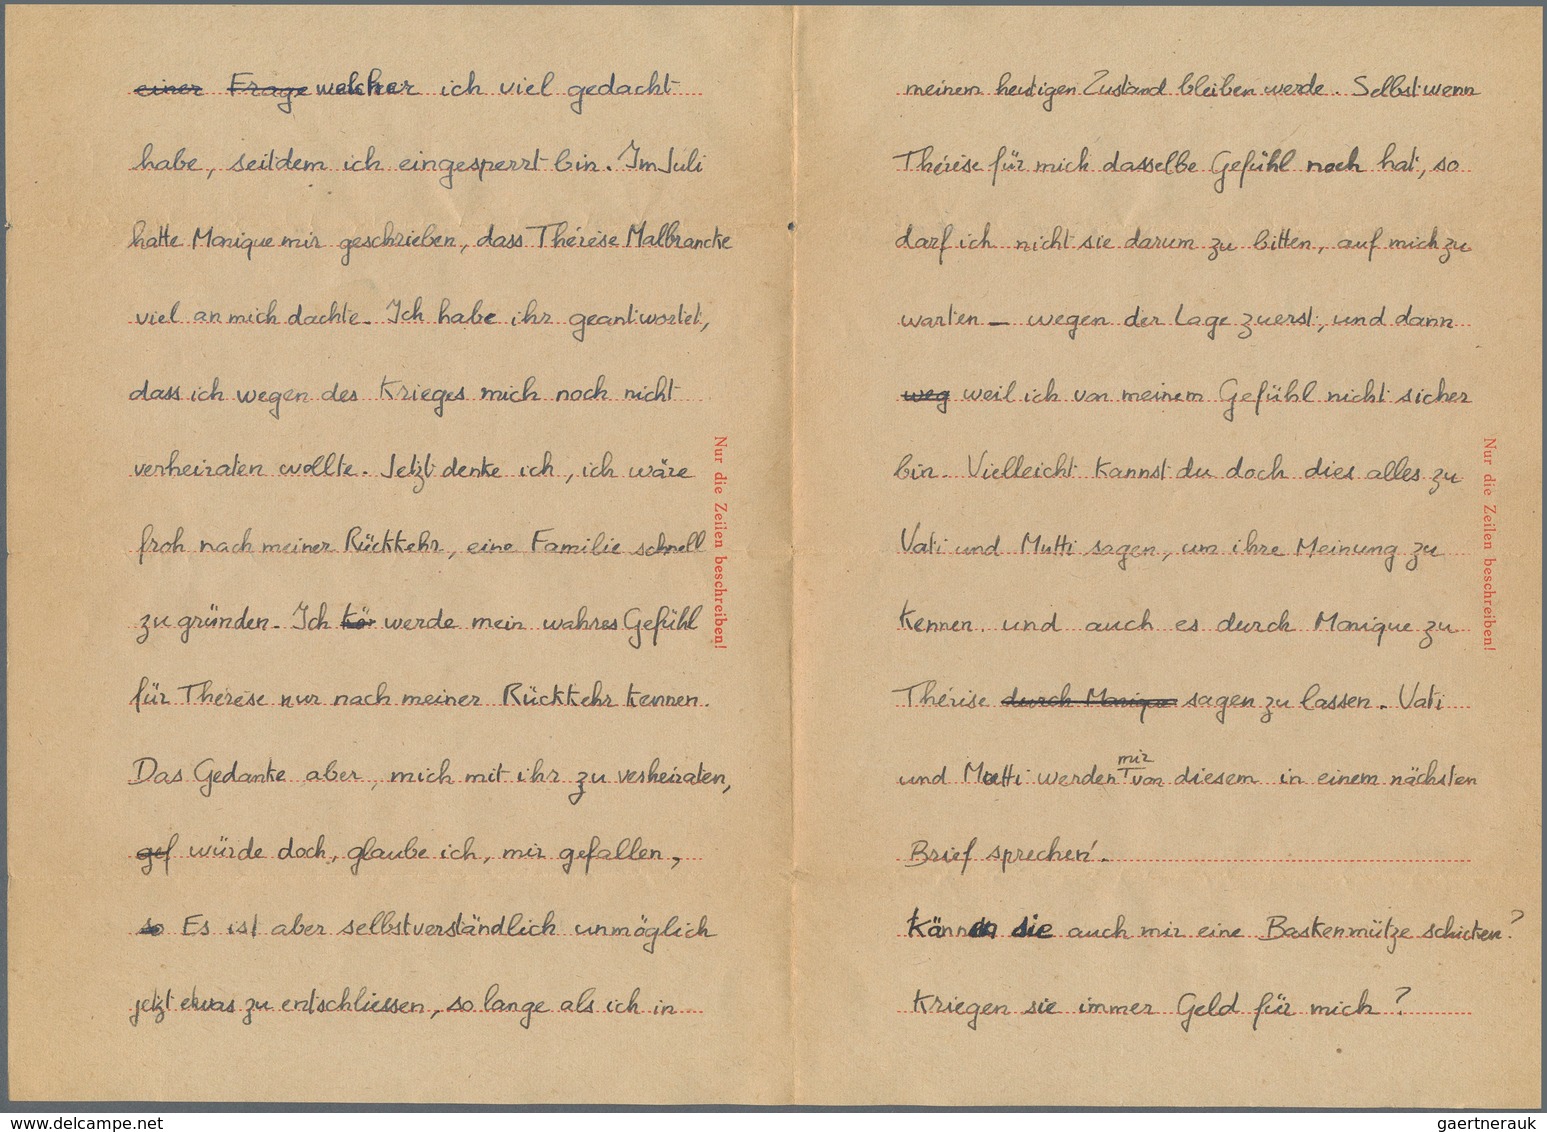 einer Frage welcher ich viel gedacht
habe, seitdem ich eingesperrt bin. Im Juli
hatte Monique mir geschrieben, dass Thérèse Malbrancke
viel an mich dachte. Ich habe ihr geantwortet,
dass ich wegen des Krieges mich noch nicht
verheiraten wollte. Jetzt denke ich, ich wäre
froh nach meiner Rückkehr, eine Familie schnell
zu gründen. Ich kö werde mein wahres Gefühl
für Thérèse nur nach meiner Rückkehr kennen.
Das Gedanke aber, mich mit ihr zu verheiraten,
gef würde doch, glaube ich, mir gefallen,
so Es ist aber selbstverständlich unmöglich
jetzt etwas zu entschliessen, so lange als ich in
Nur die Zeilen beschreiben!
meinem heutigen Zustand bleiben werde. Selbst wenn
Thérèse für mich dasselbe Gefühl noch hat, so
darf ich nicht sie darum zu bitten, auf mich zu
warten — wegen der Lage zuerst, und dann
weg weil ich von meinem Gefühl nicht sicher
bin. Vielleicht kannst du doch dies alles zu
Vati und Mutti sagen, um ihre Meinung zu
kennen, und auch es durch Monique zu
Thérèse durch Monique sagen zu lassen. Vati
und Mutti werden mir von diesem in einem nächsten
Brief sprechen.
Können sie auch mir eine Baskenmütze schicken?
Kriegen sie immer Geld für mich?
Nur die Zeilen beschreiben!
www.delcampe.net
gaertnerauk